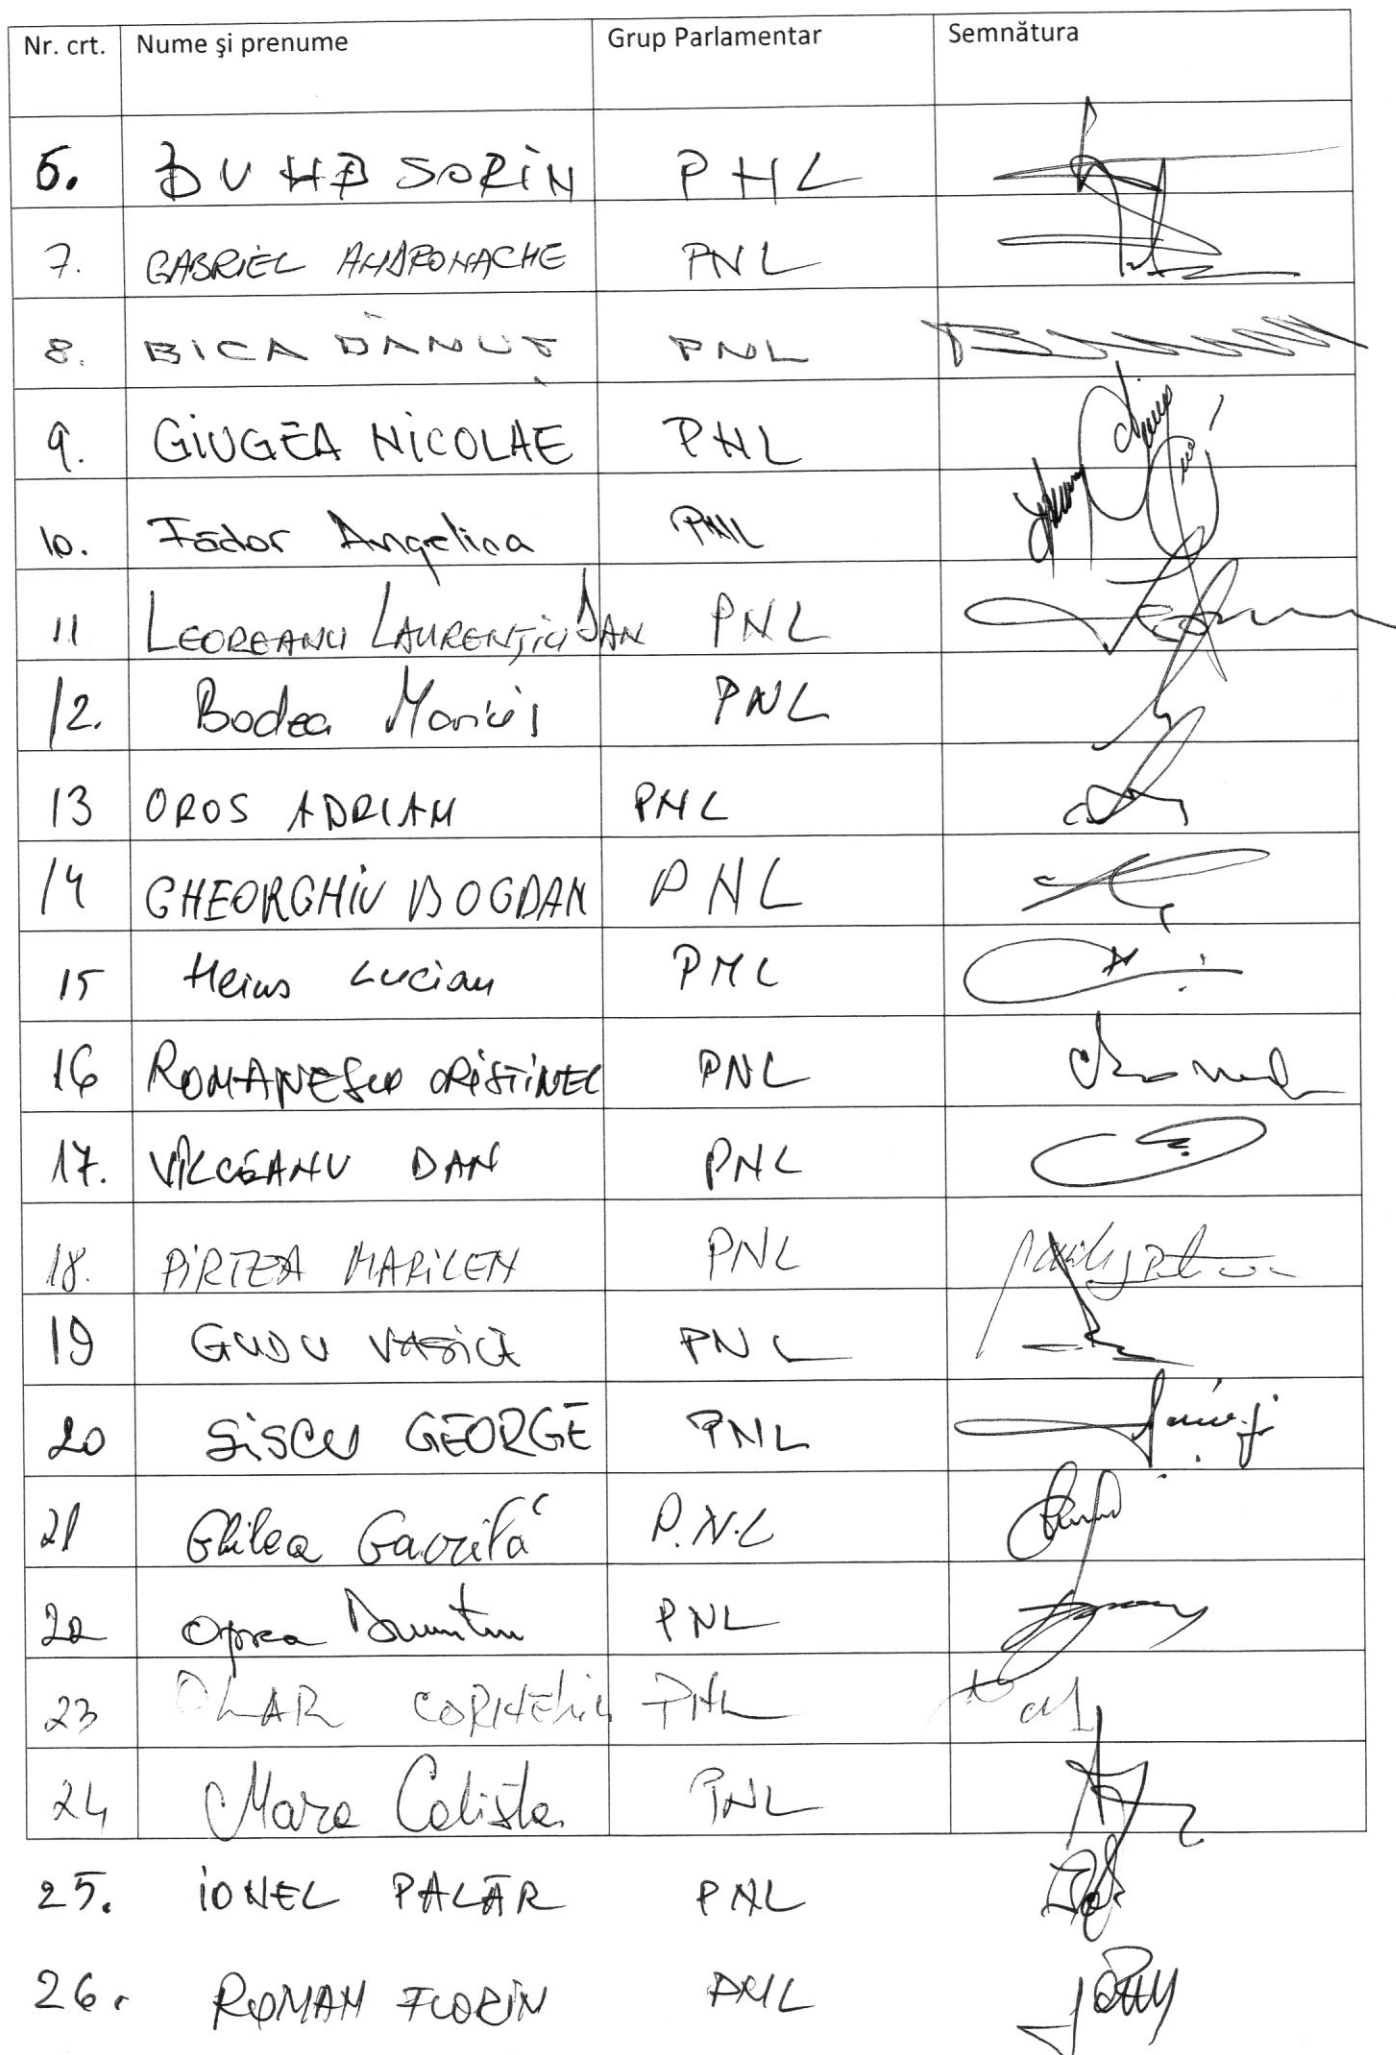 Nr. crt. Nume şi prenume Grup Parlamentar Semnătura
6. BUMB SORIN PNL
7. GABRIEL ANDRONACHE PNL
8. BICA DĂNUȚ PNL
9. GIUGEA NICOLAE PNL
10. Fădor Angelica PNL
11 LEOREANU LAURENȚIU DAN PNL
12. Bodea Marius PNL
13 OROS ADRIAN PNL
14 GHEORGHIU BOGDAN PNL
15 Heius Lucian PNL
16 ROMANESCU CRISTINEL PNL
17. VÎLCEANU DAN PNL
18. PIRTEA MARILEN PNL
19 GUDU VASILE PNL
20 ȘIȘCU GEORGE PNL
21 Ghilea Găvrilă P.N.L
22 Oprea Dumitru PNL
23 OLAR CORNELIU PNL
24 Mara Calista PNL
25. IONEL PALĂR PNL
26. ROMAN FLORIN PNL